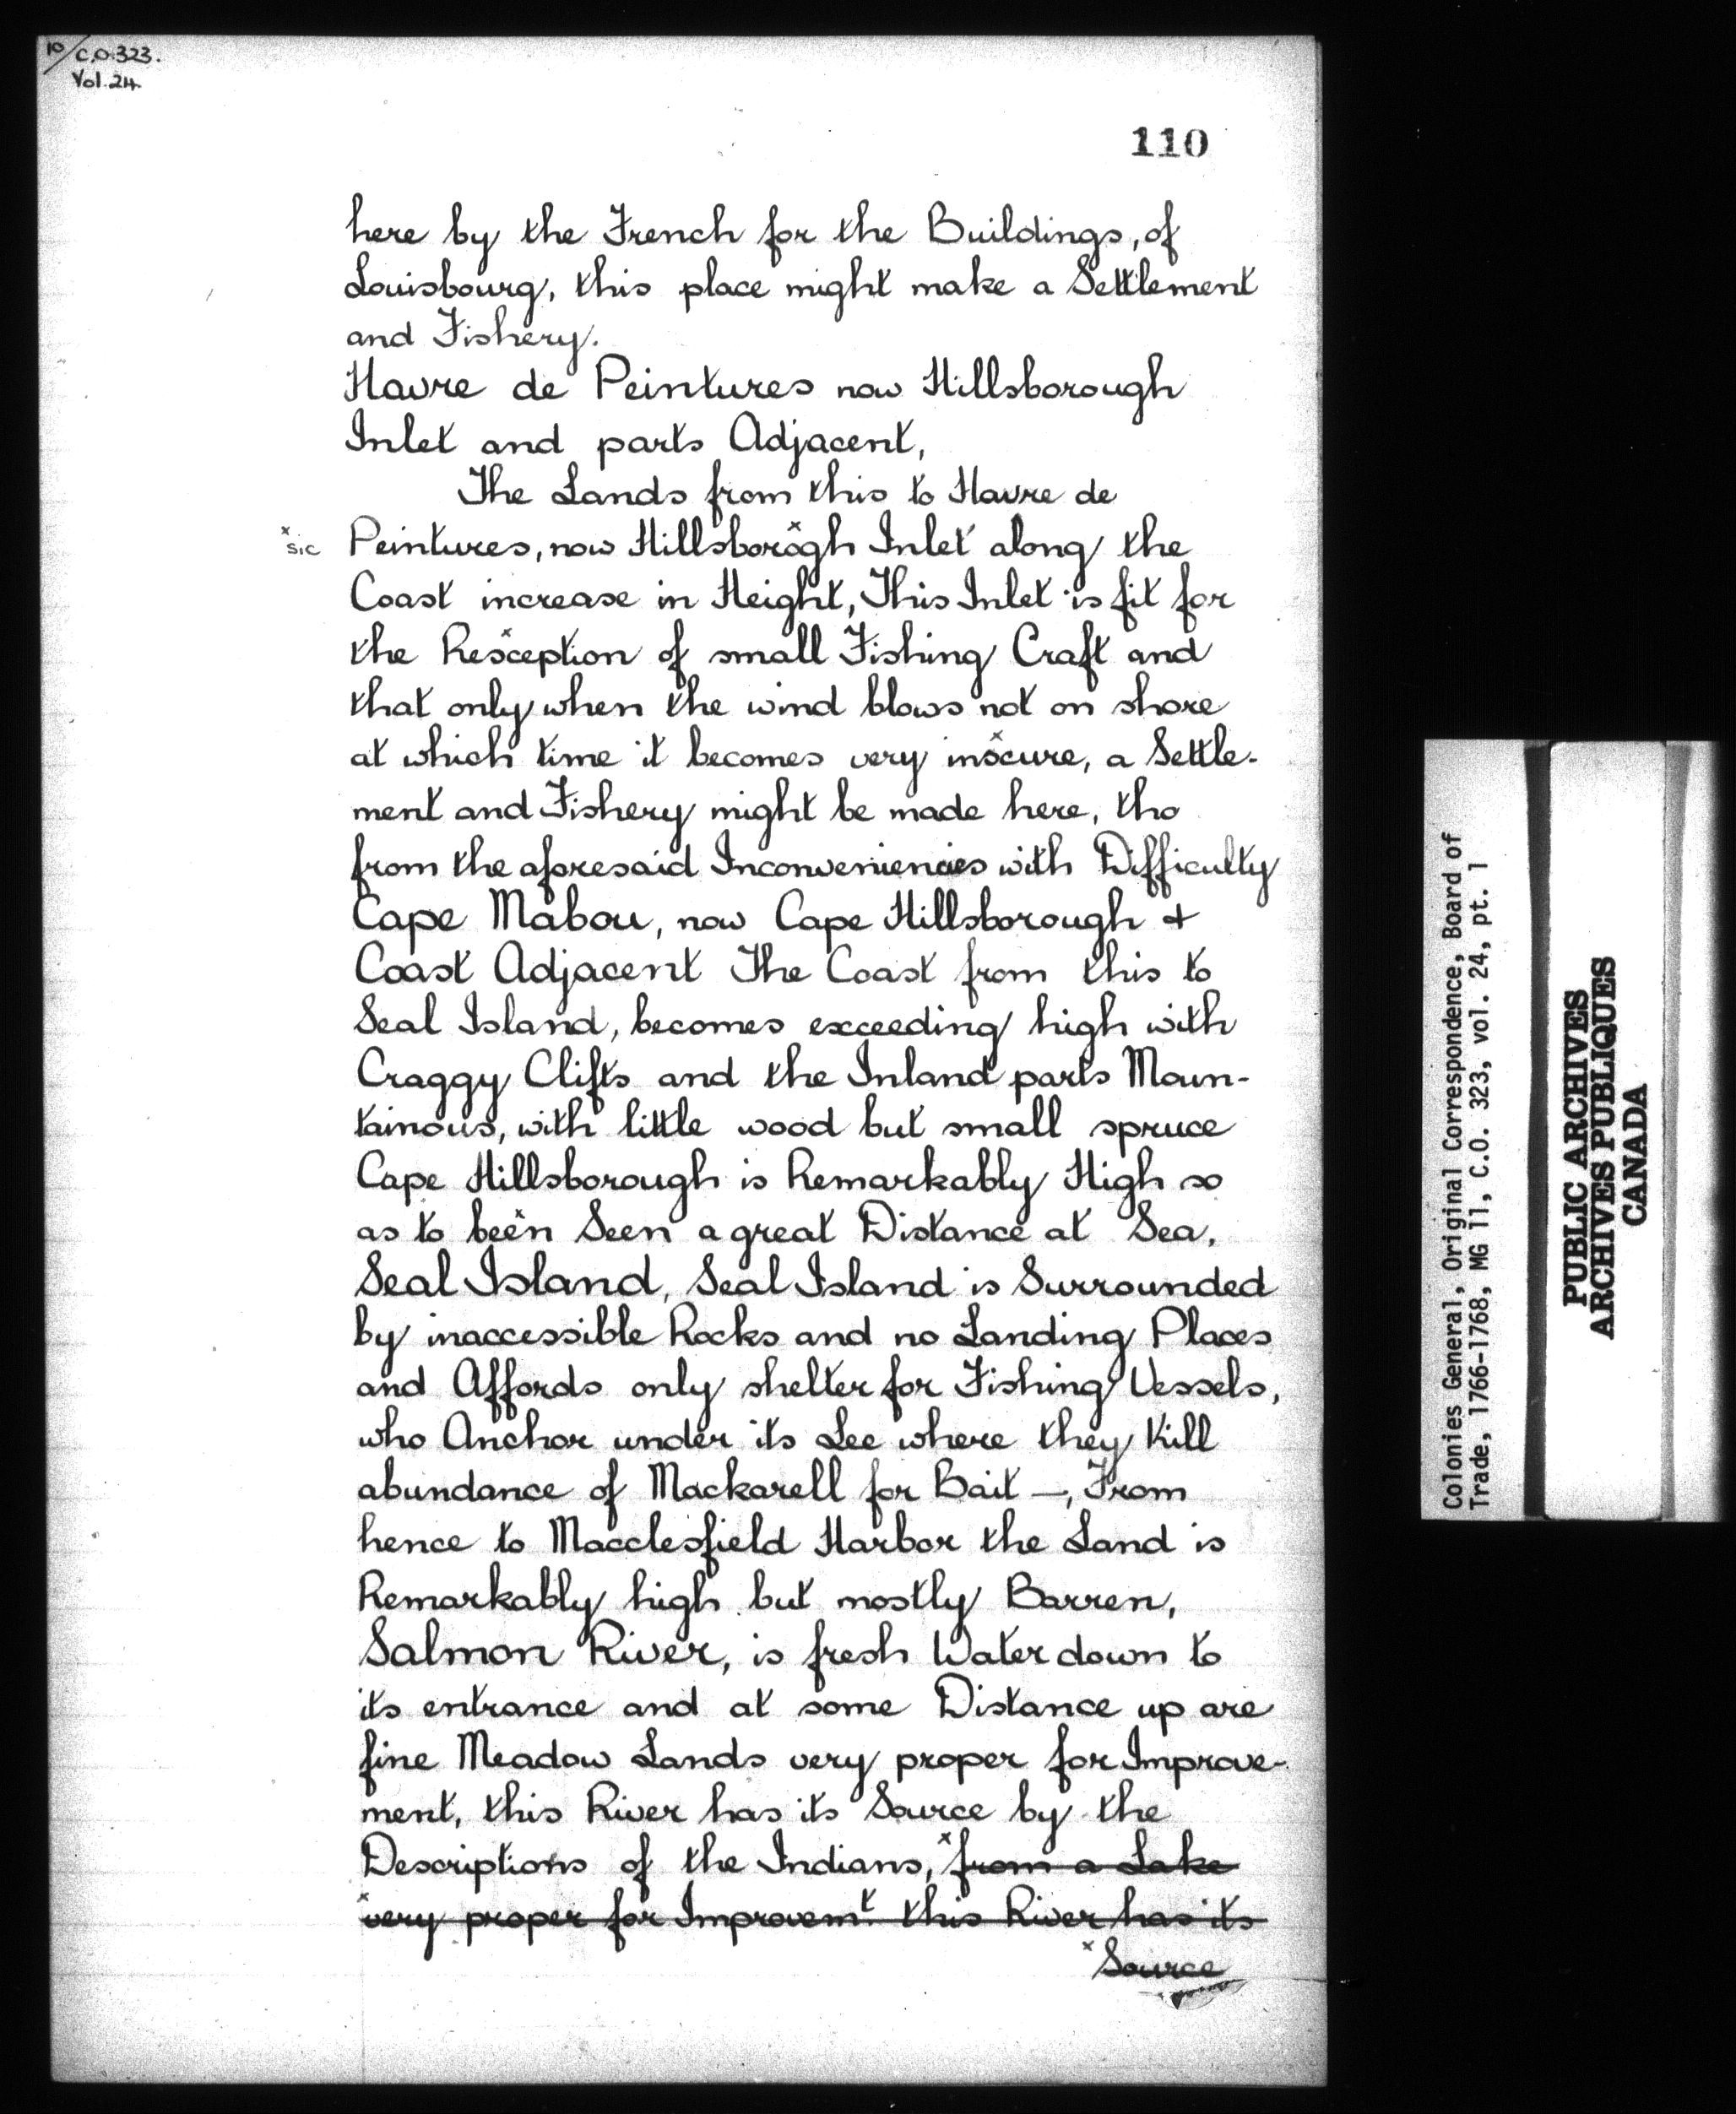 10/C.O.323.
Vol.24.
110
here by the French for the Buildings, of
Louisbourg, this place might make a Settlement
and Fishery.
Havre de Peintures now Hillsborough
Inlet and parts Adjacent,
The Lands from this to Havre de
x sic Peintures, now Hillsborxogh Inlet along the
Coast increase in Height, This Inlet is fit for
the Resxception of small Fishing Craft and
that only when the wind blows not on shore
at which time it becomes very insxcure, a Settle-
ment and Fishery might be made here, tho
from the aforesaid Inconveniencies with Difficulty
Cape Mabou, now Cape Hillsborough &
Coast Adjacent The Coast from this to
Seal Island, becomes exceeding high with
Craggy Clifts and the Inland parts Moun-
tainous, with little wood but small spruce
Cape Hillsborough is Remarkably High so
as to beexn Seen a great Distance at Sea,
Seal Island, Seal Island is Surrounded
by inaccessible Rocks and no Landing Places
and Affords only shelter for Fishing Vessels,
who Anchor under its Lee where they Kill
abundance of Mackarell for Bait —, From
hence to Macclesfield Harbor the Land is
Remarkably high but mostly Barren,
Salmon River, is fresh Water down to
its entrance and at some Distance up are
fine Meadow Lands very proper for Improve-
ment, this River has its Source by the
Descriptions of the Indians, x from a Lake
x very proper for Improvemt. this River has its
x Source
Colonies General, Original Correspondence, Board of
Trade, 1766-1768, MG 11, C.O. 323, vol. 24, pt. 1
PUBLIC ARCHIVES
ARCHIVES PUBLIQUES
CANADA